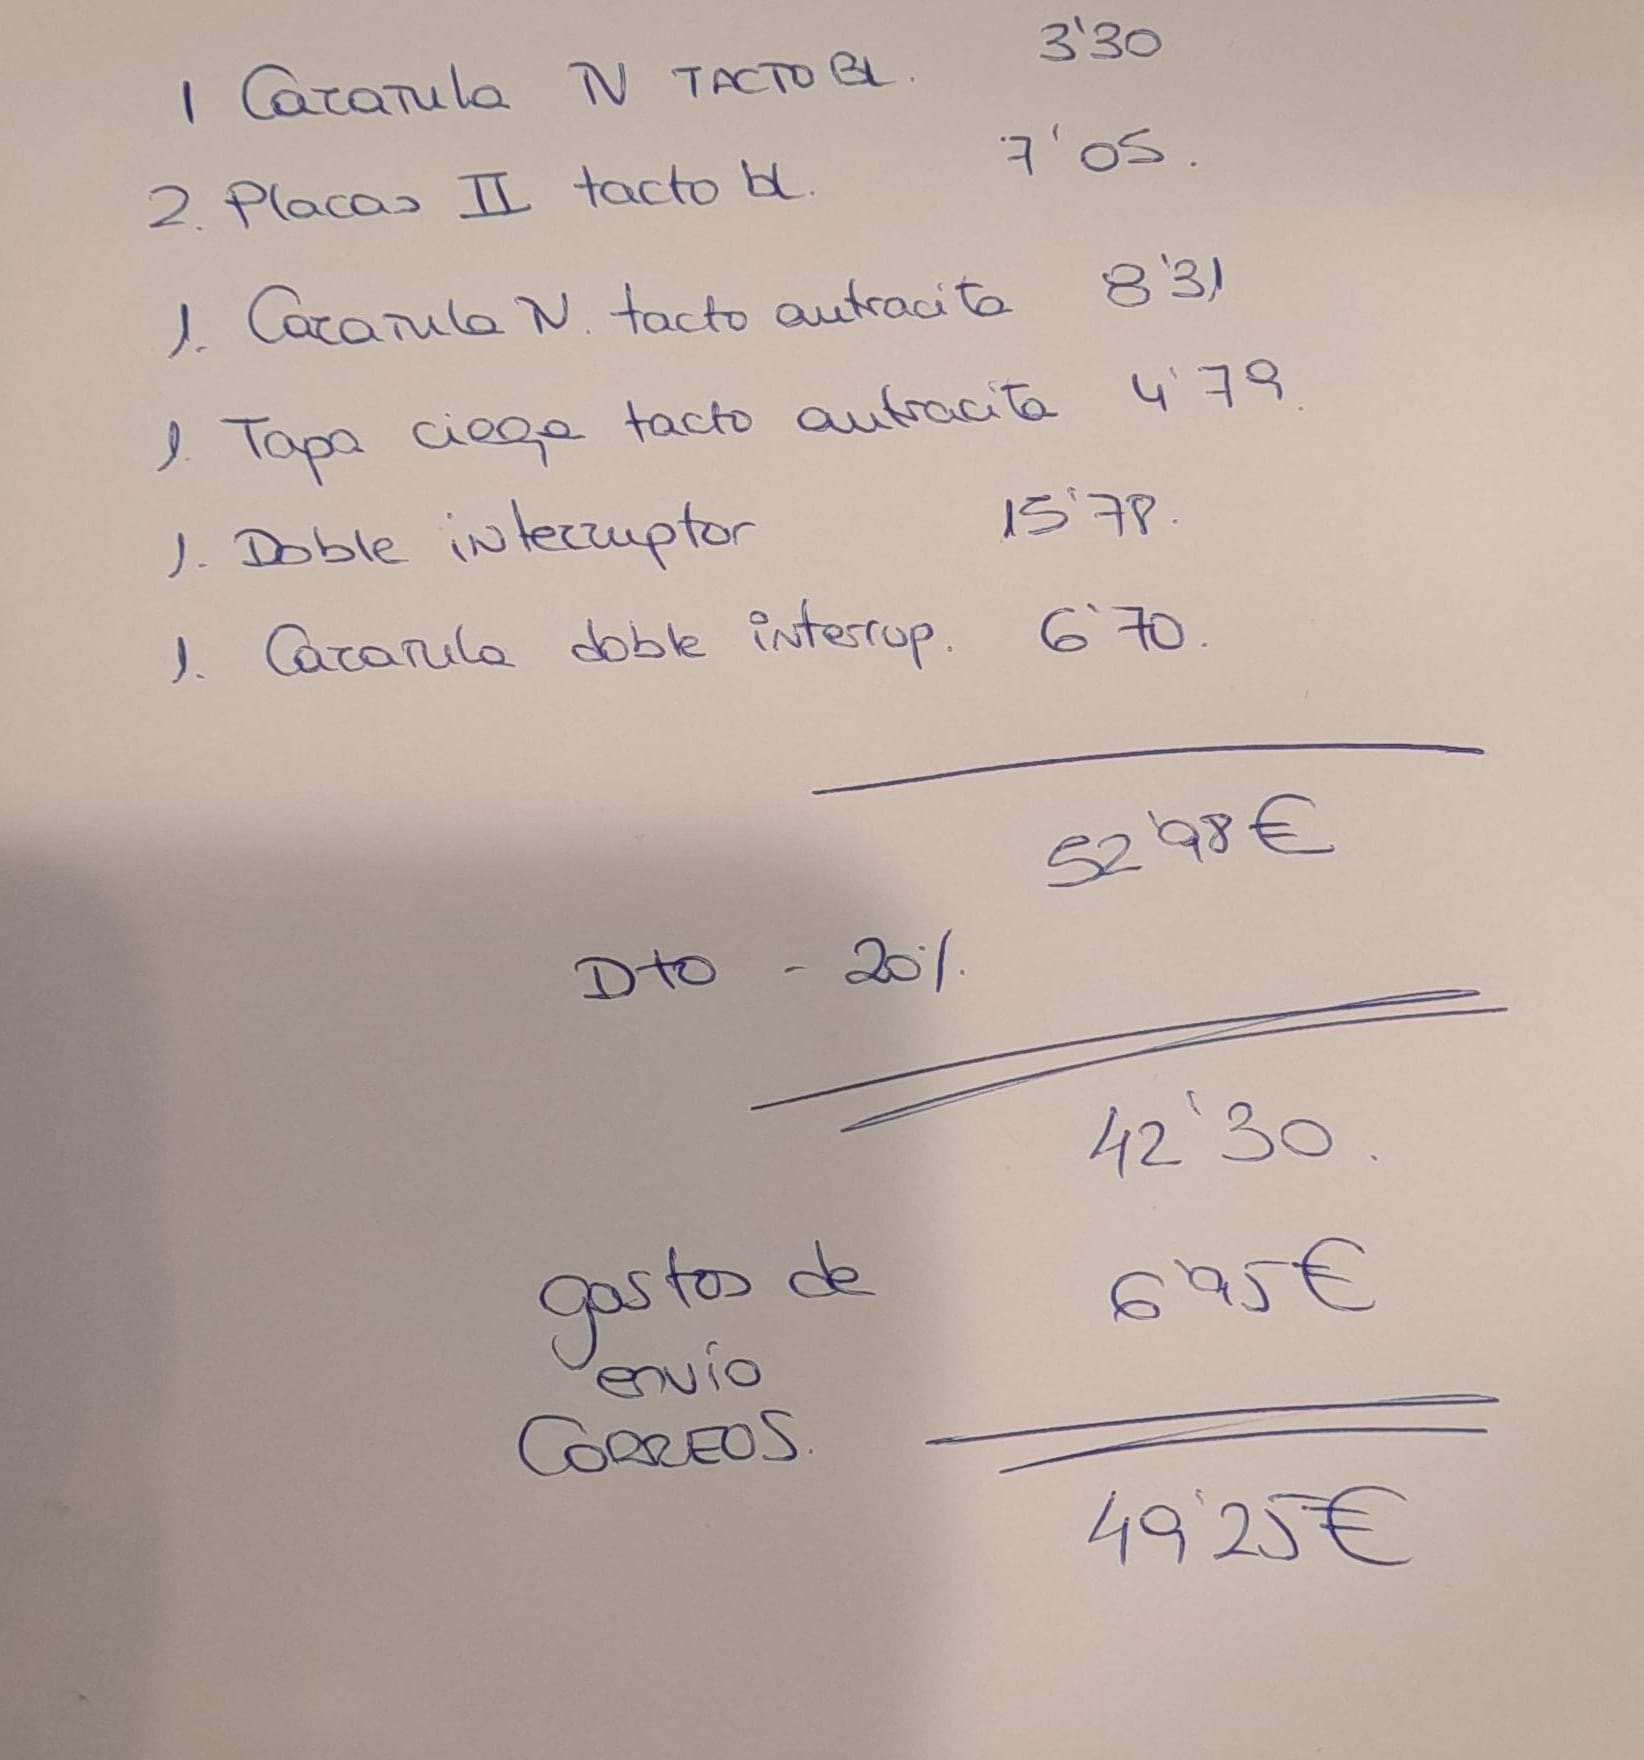 1 Caratula N TACTO BL. 3'30
2. Placas II tacto bl. 7'05.
1. Caratula N. tacto antracita 8'31
1. Tapa ciega tacto antracita 4'79.
1. Doble interruptor 15'78.
1. Caratula doble interrup. 6'70.
52'98€
Dto - 20%.
42'30.
gastos de 6'95€
envío
CORREOS.
49'25€